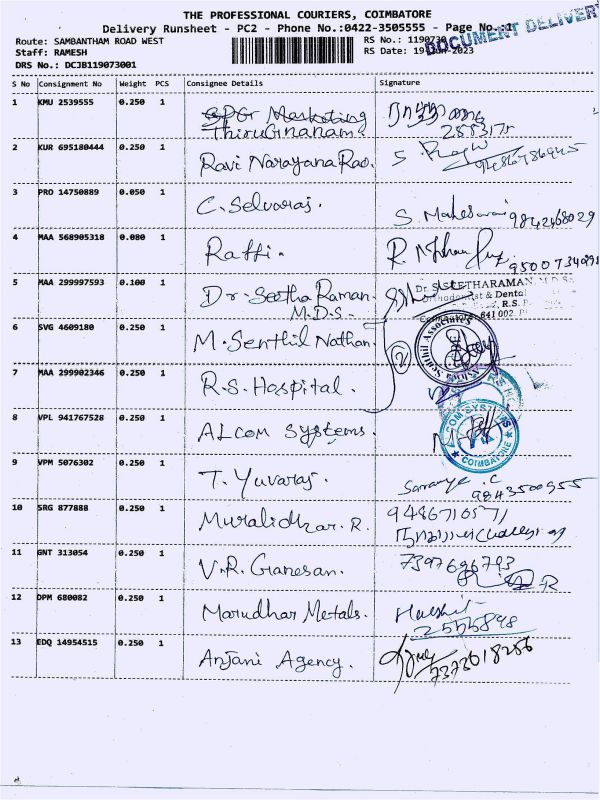 THE PROFESSIONAL COURIERS, COIMBATORE
Delivery Runsheet - PC2 - Phone No.:0422-3505555 - Page No.:1
DOCUMENT DELIVERY
Route: SAMBANTHAM ROAD WEST
RS No.: 1190730
Staff: RAMESH
RS Date: 19-Jun-2023
DRS No.: DCJB119073001
S No Consignment No Weight PCS Consignee Details Signature
1 KMU 2539555 0.250 1 Marketing
ThiruGnanam
2 KUR 695180444 0.250 1 Ravi Narayana Rao. S.
3 PRO 14750889 0.050 1 C. Selvaraj. S. Maheswari 9842468029
4 MAA 568905318 0.080 1 Raffi. R.
5 MAA 299997593 0.100 1 Dr. Seetha Raman. Dr. S. SEETHARAMAN
M.D.S- Orthodontist & Dental
641 002
6 SVG 4609180 0.250 1 M. Senthil Nathan Senthil Associates
2
7 MAA 299902346 0.250 1 R.S. Hospital.
8 VPL 941767528 0.250 1 ALCOM Systems. ALCOM SYSTEMS
COIMBATORE
9 VPM 5076302 0.250 1 T. Yuvaraj. Saranya. C
9843500955
10 SRG 877888 0.250 1 Muralidhar. R. 9486710571
11 GNT 313054 0.250 1 V.R. Ganesan. 7397696793
12 DPM 680082 0.250 1 Marudhar Metals. Harshit
2555898
13 EDQ 14954515 0.250 1 Anjani Agency. 7373018286